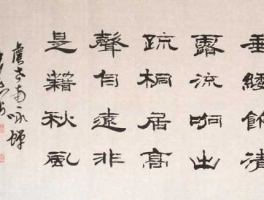 垂緌飲清
露流响出
疏桐居高
聲自遠非
是藉秋風
虞世南咏蟬